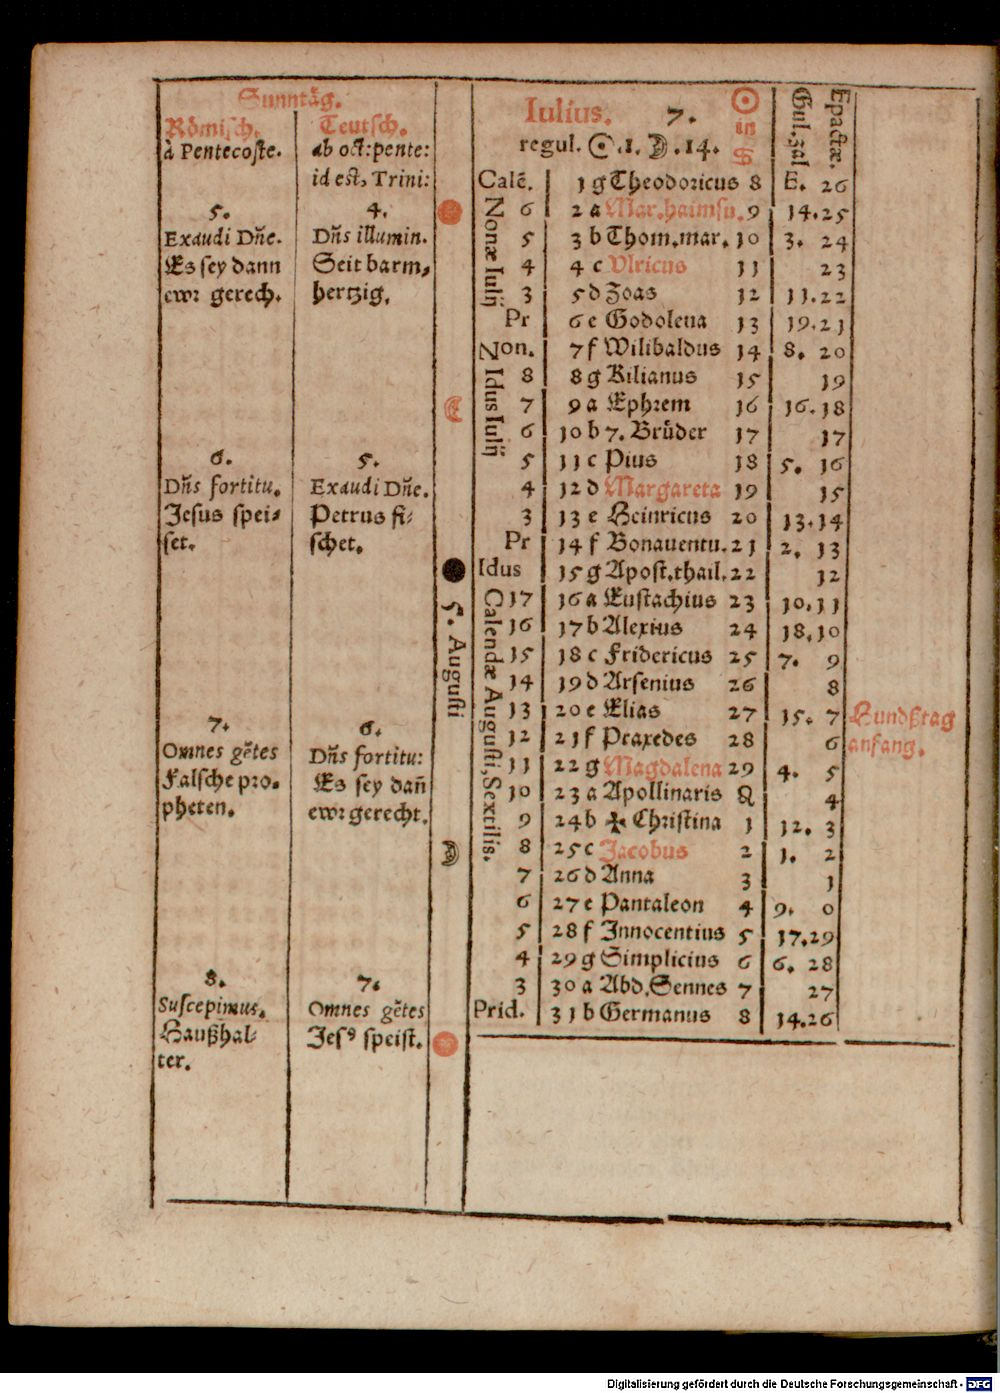 Sunntåg.
Römisch. Teutsch.
à Pentecoste. ab oct: pente:
id est, Trini:
5. 4.
Exaudi Dñe. Dñs illumin.
Es sey dann Seit barm,
ewr gerech. hertzig.
6. 5.
Dñs fortitu. Exaudi Dñe.
Jesus spei= Petrus fi=
set. schet.
7. 6.
Omnes gẽtes Dñs fortitu:
Falsche pro. Es sey dañ
pheten. ewr gerecht.
8. 7.
Suscepimus. Omnes gẽtes
Haußhal= Jesꝰ speist.
ter.
5. Augusti
Iulius. 7. ☉ in ♋ Gul. zal Epactæ.
regul. ☉.1. ☽.14.
Nonæ Iulij
Idus Iulij
Calendæ Augusti, Sextilis.
Calẽ. 1 g Theodoricus 8 E. 26
6 2 a Mar. haimsu. 9 14. 25
5 3 b Thom. mar. 10 3. 24
4 4 c Vlricus 11 23
3 5 d Zoas 12 11. 22
Pr 6 e Godoleua 13 19. 21
Non. 7 f Wilibaldus 14 8. 20
8 8 g Kilianus 15 19
7 9 a Ephrem 16 16. 18
6 10 b 7. Brůder 17 17
5 11 c Pius 18 5. 16
4 12 d Margareta 19 15
3 13 e Heinricus 20 13. 14
Pr 14 f Bonauentu. 21 2. 13
Idus 15 g Apost. thail. 22 12
17 16 a Eustachius 23 10. 11
16 17 b Alexius 24 18. 10
15 18 c Fridericus 25 7. 9
14 19 d Arsenius 26 8
13 20 e Elias 27 15. 7 Hundßtag
12 21 f Praxedes 28 6 anfang.
11 22 g Magdalena 29 4. 5
10 23 a Apollinaris ♌ 4
9 24 b ✠ Christina 1 12. 3
8 25 c Jacobus 2 1. 2
7 26 d Anna 3 1
6 27 e Pantaleon 4 9. 0
5 28 f Innocentius 5 17. 29
4 29 g Simplicius 6 6. 28
3 30 a Abd. Sennes 7 27
Prid. 31 b Germanus 8 14. 26
Digitalisierung gefördert durch die Deutsche Forschungsgemeinschaft - DFG